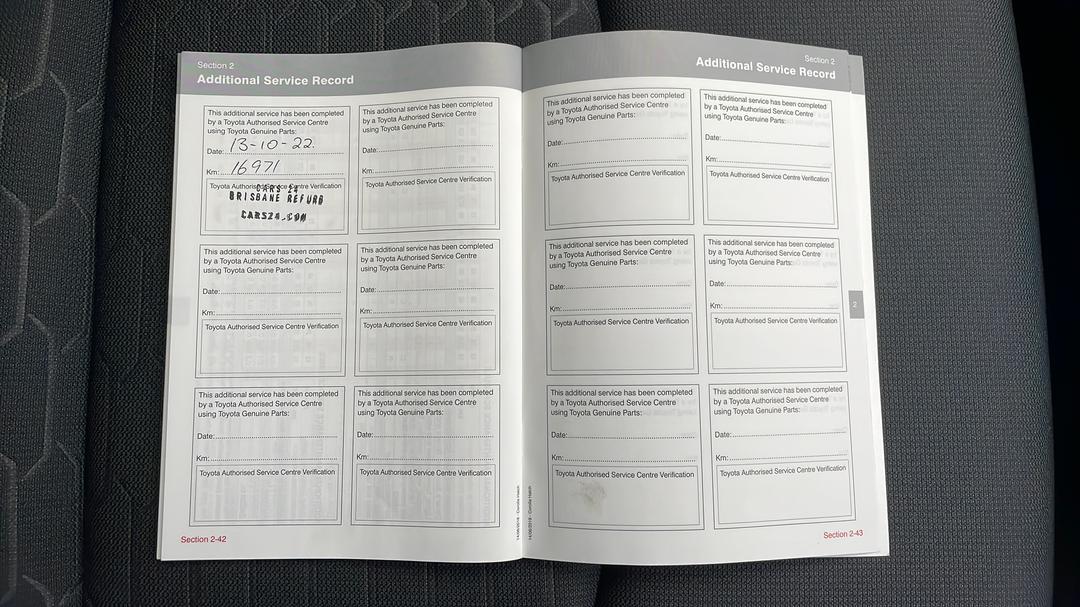 Section 2
Additional Service Record
This additional service has been completed
by a Toyota Authorised Service Centre
using Toyota Genuine Parts:
Date: 13-10-22.
Km: 16971
Toyota Authorised Service Centre Verification
CARS 24
BRISBANE REFURB
CARS24.COM
This additional service has been completed
by a Toyota Authorised Service Centre
using Toyota Genuine Parts:
Date:
Km:
Toyota Authorised Service Centre Verification
This additional service has been completed
by a Toyota Authorised Service Centre
using Toyota Genuine Parts:
Date:
Km:
Toyota Authorised Service Centre Verification
This additional service has been completed
by a Toyota Authorised Service Centre
using Toyota Genuine Parts:
Date:
Km:
Toyota Authorised Service Centre Verification
This additional service has been completed
by a Toyota Authorised Service Centre
using Toyota Genuine Parts:
Date:
Km:
Toyota Authorised Service Centre Verification
This additional service has been completed
by a Toyota Authorised Service Centre
using Toyota Genuine Parts:
Date:
Km:
Toyota Authorised Service Centre Verification
Section 2-42
14/06/2018 - Corolla Hatch
Section 2
Additional Service Record
This additional service has been completed
by a Toyota Authorised Service Centre
using Toyota Genuine Parts:
Date:
Km:
Toyota Authorised Service Centre Verification
This additional service has been completed
by a Toyota Authorised Service Centre
using Toyota Genuine Parts:
Date:
Km:
Toyota Authorised Service Centre Verification
This additional service has been completed
by a Toyota Authorised Service Centre
using Toyota Genuine Parts:
Date:
Km:
Toyota Authorised Service Centre Verification
This additional service has been completed
by a Toyota Authorised Service Centre
using Toyota Genuine Parts:
Date:
Km:
Toyota Authorised Service Centre Verification
2
This additional service has been completed
by a Toyota Authorised Service Centre
using Toyota Genuine Parts:
Date:
Km:
Toyota Authorised Service Centre Verification
This additional service has been completed
by a Toyota Authorised Service Centre
using Toyota Genuine Parts:
Date:
Km:
Toyota Authorised Service Centre Verification
14/06/2018 - Corolla Hatch
Section 2-43